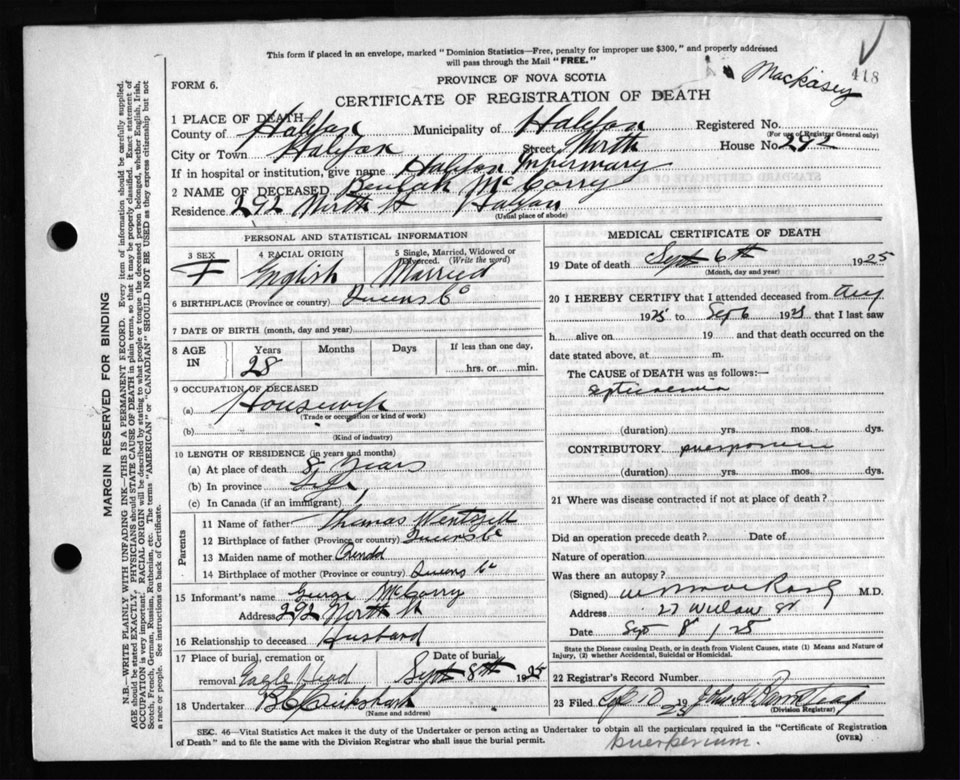 This form if placed in an envelope, marked "Dominion Statistics—Free, penalty for improper use $300," and properly addressed
will pass through the Mail "FREE."
Mackasey
418
FORM 6.
PROVINCE OF NOVA SCOTIA
CERTIFICATE OF REGISTRATION OF DEATH
1 PLACE OF DEATH
County of Halifax Municipality of Halifax Registered No.
(For use of Registrar General only)
City or Town Halifax Street North House No. 292
If in hospital or institution, give name Halifax Infirmary
2 NAME OF DECEASED Beulah McCorry
Residence 292 North St Halifax
(Usual place of abode)
PERSONAL AND STATISTICAL INFORMATION
3 SEX F
4 RACIAL ORIGIN English
5 Single, Married, Widowed or Divorced. (Write the word) Married
6 BIRTHPLACE (Province or country) Queens Co
7 DATE OF BIRTH (month, day and year)
8 AGE IN
Years Months Days If less than one day,
28 hrs. or min.
9 OCCUPATION OF DECEASED
(a) Housewife
(Trade or occupation or kind of work)
(b)
(Kind of industry)
10 LENGTH OF RESIDENCE (in years and months)
(a) At place of death 8 Years
(b) In province Life
(c) In Canada (if an immigrant)
Parents
11 Name of father Thomas Wentzell
12 Birthplace of father (Province or country) Queens Co
13 Maiden name of mother
14 Birthplace of mother (Province or country) Queens Co
15 Informant's name George McCorry
Address 292 North St
16 Relationship to deceased Husband
17 Place of burial, cremation or Date of burial
removal Eagle Head Sept 8th 1925
18 Undertaker
(Name and address)
MEDICAL CERTIFICATE OF DEATH
19 Date of death Sept 6th 1925
(Month, day and year)
20 I HEREBY CERTIFY that I attended deceased from Aug
1925 to Sep 6 1925 that I last saw
h alive on 19 and that death occurred on
date stated above, at m.
The CAUSE of DEATH was as follows:—
septicaemia
(duration) yrs. mos. dys.
CONTRIBUTORY puerperium
(duration) yrs. mos. dys.
21 Where was disease contracted if not at place of death?
Did an operation precede death? Date of
Nature of operation
Was there an autopsy?
(Signed) M.D.
Address 27 Willow St
Date Sept 8 / 25
State the Disease causing Death, or in death from Violent Causes, state (1) Means and Nature of
Injury, (2) whether Accidental, Suicidal or Homicidal.
22 Registrar's Record Number
23 Filed 10 1925
(Division Registrar)
SEC. 46—Vital Statistics Act makes it the duty of the Undertaker or person acting as Undertaker to obtain all the particulars required in the "Certificate of Registration
of Death" and to file the same with the Division Registrar who shall issue the burial permit.
(OVER)
puerperium.
MARGIN RESERVED FOR BINDING
N.B.—WRITE PLAINLY WITH UNFADING INK—THIS IS A PERMANENT RECORD. Every item of information should be carefully supplied.
AGE should be stated EXACTLY. PHYSICIANS should STATE CAUSE OF DEATH in plain terms, so that it may be properly classified. Exact statement of
OCCUPATION is very important. RACIAL ORIGIN will be described by stating to what people or tongue the deceased person belonged, whether English, Irish,
Scotch, French, German, Russian, Ruthenian, etc. The terms "AMERICAN" or "CANADIAN" SHOULD NOT BE USED as they express citizenship but not
a race or people. See instructions on back of Certificate.